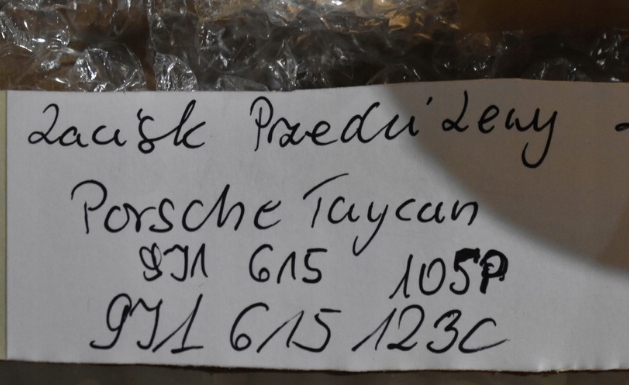 Zacisk Przedni Lewy -
Porsche Taycan
9J1 615 105P
9J1 615 123C